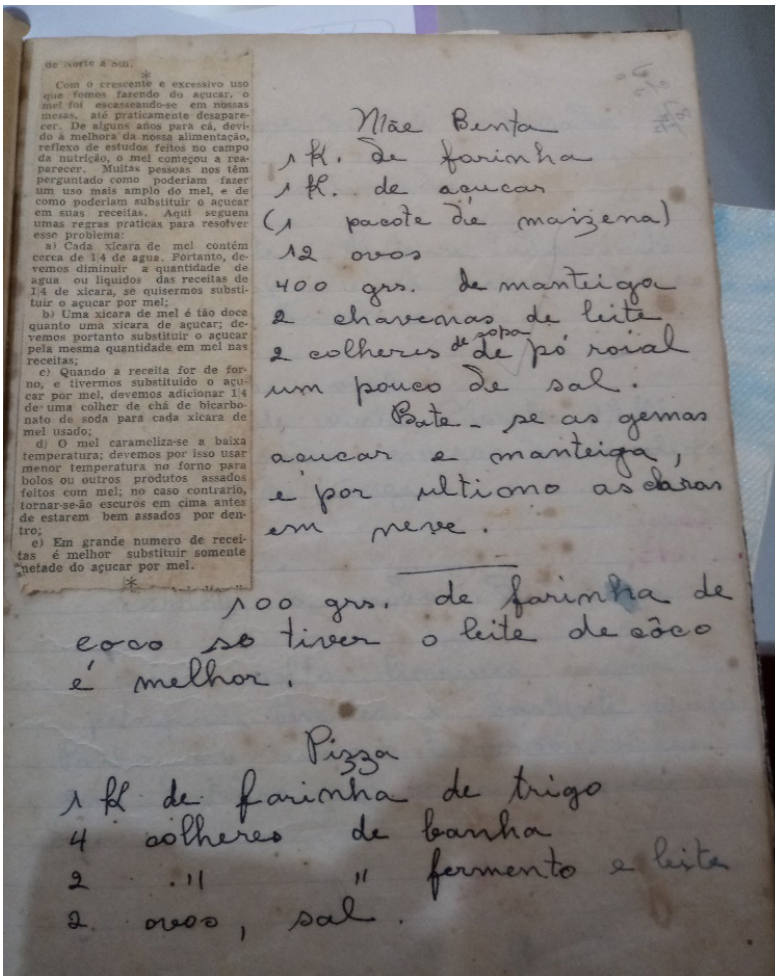 de Norte a Sul.
*
Com o crescente e excessivo uso
que fomos fazendo do açucar, o
mel foi escasseando-se em nossas
mesas, até praticamente desapare-
cer. De alguns anos para cá, devi-
do á melhora da nossa alimentação,
reflexo de estudos feitos no campo
da nutrição, o mel começou a rea-
parecer. Muitas pessoas nos têm
perguntado como poderiam fazer
um uso mais amplo do mel, e de
como poderiam substituir o açucar
em suas receitas. Aqui seguem
umas regras praticas para resolver
esse problema:
a) Cada xicara de mel contém
cerca de 1|4 de agua. Portanto, de-
vemos diminuir a quantidade de
agua ou liquidos das receitas de
1|4 de xicara, se quisermos substi-
tuir o açucar por mel;
b) Uma xicara de mel é tão doce
quanto uma xicara de açucar; de-
vemos portanto substituir o açucar
pela mesma quantidade em mel nas
receitas;
c) Quando a receita for de for-
no, e tivermos substituido o açu-
car por mel, devemos adicionar 1|4
de uma colher de chá de bicarbo-
nato de soda para cada xicara de
mel usado;
d) O mel carameliza-se a baixa
temperatura; devemos por isso usar
menor temperatura no forno para
bolos ou outros produtos assados
feitos com mel; no caso contrario,
tornar-se-ão escuros em cima antes
de estarem bem assados por den-
tro;
e) Em grande numero de recei-
tas é melhor substituir somente
metade do açucar por mel.
*
Mãe Benta
1 K. de farinha
1 K. de açucar
(1 pacote de maizena)
12 ovos
400 grs. de manteiga
2 chavenas de leite
2 colheres de sopa de pó roial
um pouco de sal.
Bate-se as gemas
açucar e manteiga,
e por ultimo as claras
em neve.
100 grs. de farinha de
coco se tiver o leite de côco
é melhor.
Pizza
1 K de farinha de trigo
4 colheres de banha
2 " " fermento e leite
2 ovos, sal.